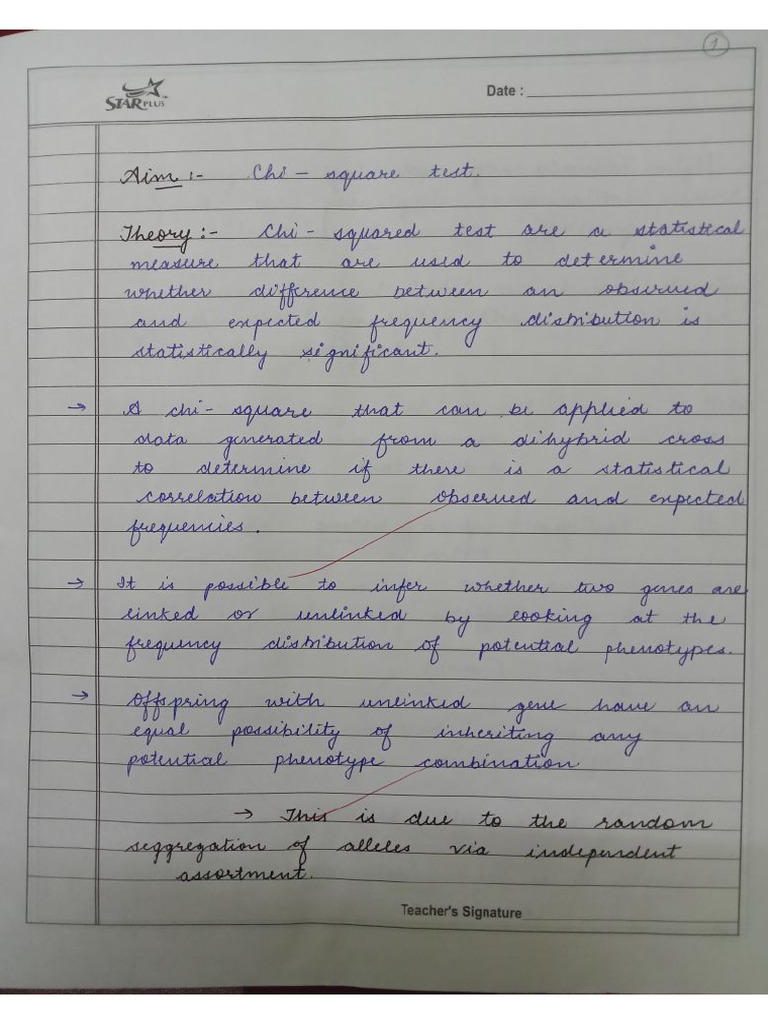 1
STAR PLUS
Date :
Aim :- Chi - square test.
Theory :- Chi - squared test are a statistical
measure that are used to determine
whether difference between an observed
and expected frequency distribution is
statistically significant.
→ A chi - square that can be applied to
data generated from a dihybrid cross
to determine if there is a statistical
correlation between observed and expected
frequencies.
→ It is possible to infer whether two genes are
linked or unlinked by looking at the
frequency distribution of potential phenotypes.
→ Offspring with unlinked gene have an
equal possibility of inheriting any
potential phenotype combination.
→ This is due to the random
seggregation of alleles via independent
assortment.
Teacher's Signature